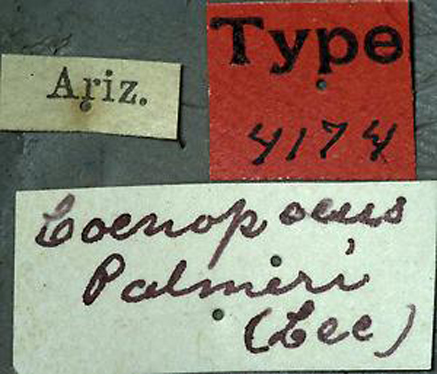 Ariz.
Type
4174
Coenopoeus
Palmeri
(Lec)